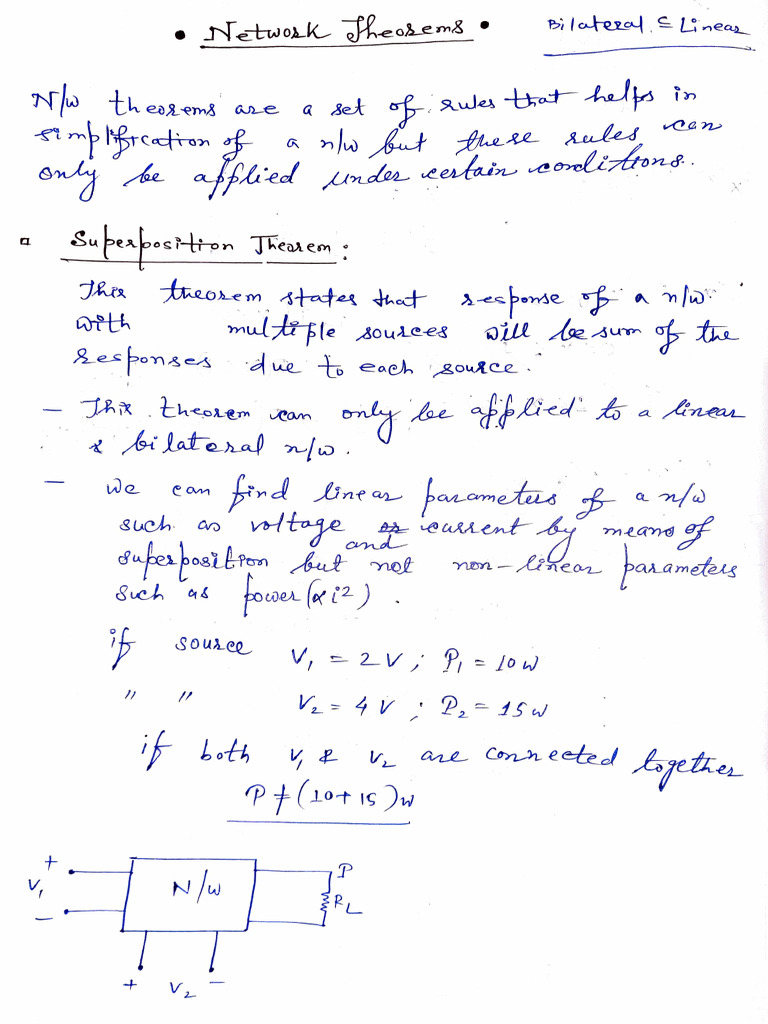 • Network Theorems •
Bilateral ⊆ Linear
N/w theorems are a set of rules that helps in
simplification of a n/w but these rules can
only be applied under certain conditions.
Superposition Theorem:
This theorem states that response of a n/w
with multiple sources will be sum of the
responses due to each source.
– This theorem can only be applied to a linear
& bilateral n/w.
– we can find linear parameters of a n/w
such as voltage and current by means of
superposition but not non-linear parameters
such as power (∝ i²).
if source V₁ = 2V ; P₁ = 10w
" " V₂ = 4V ; P₂ = 15w
if both V₁ & V₂ are connected together
P ≠ (10+15)w
+ P
V₁ N/w RL
–
+ V₂ –